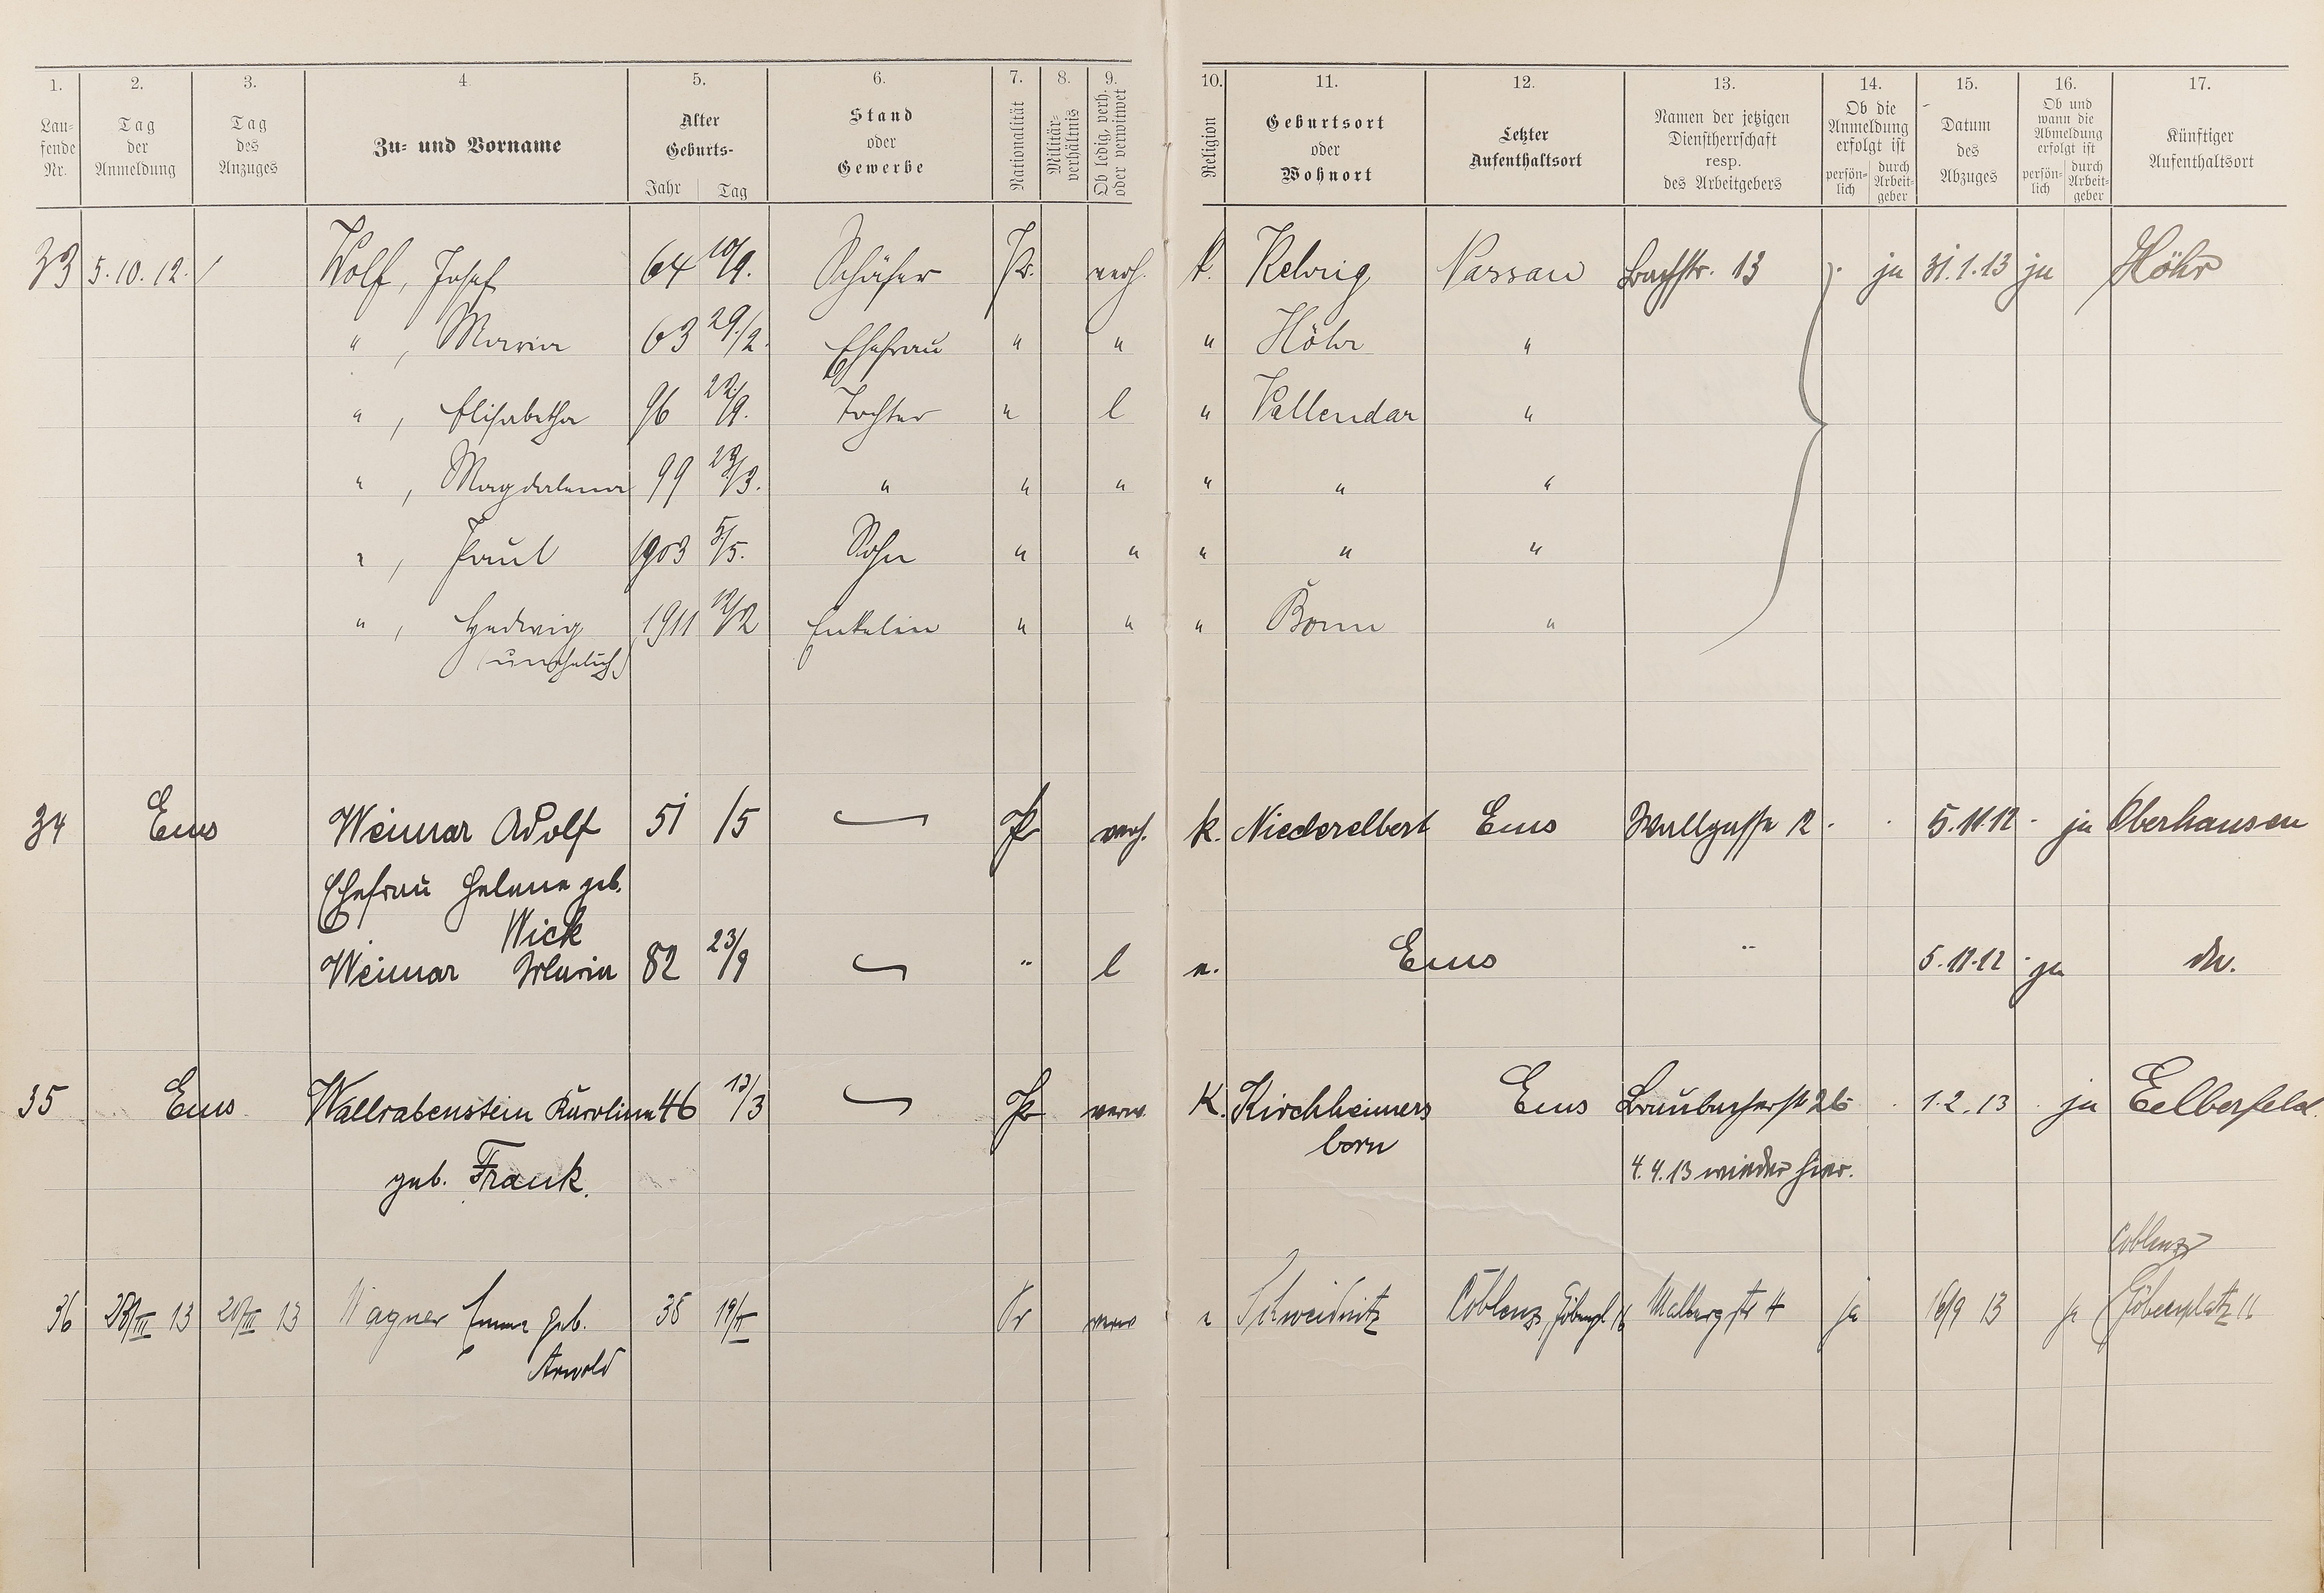 1. 2. 3. 4 5. 6. 7. 8. 9. 10. 11. 12. 13. 14. 15. 16. 17.
Lau-
fende
Nr.
Tag
der
Anmeldung
Tag
des
Anzuges
Zu- und Vorname
Alter
Geburts-
Jahr Tag
Stand
oder
Gewerbe
Nationalität
Militär-
verhältnis
Ob ledig, verh.
oder verwitwet
Religion
Geburtsort
oder
Wohnort
Letzter
Aufenthaltsort
Namen der jetzigen
Dienstherrschaft
resp.
des Arbeitgebers
Ob die
Anmeldung
erfolgt ist
persön-
lich
durch
Arbeit-
geber
Datum
des
Abzuges
Ob und
wann die
Abmeldung
erfolgt ist
persön-
lich
durch
Arbeit-
geber
Künftiger
Aufenthaltsort
33 5.10.12. / Wolf, Josef 64 10/9. Schäfer Pr. verh. k. Kehrig Nassau Bachstr. 13 ja 31.1.13 ja Höhr
" , Maria 63 29./2. Ehefrau " " " Höhr "
" , Elisabetha 96 22./9. Tochter " l " Vallendar "
" , Magdalena 99 23/3. " " " " " "
" , Paul 1903 5/5. Sohn " " " " "
" , Hedwig 1911 12/2 Enkelin " " " Bonn "
(unehelich)
34 Ems Weimar Adolf 51 /5 Pr verh. k. Niederelbert Ems Wallgasse 12 5.11.12 ja Oberhausen
Ehefrau Helene geb.
Wick
Weimar Maria 82 23/9 " l " Ems " 5.11.12 ja do.
35 Ems Wallrabenstein Karoline 46 13/3 Pr verw. K. Kirchheimers Ems Braubacherst 26 1.2.13 ja Eelberfeld.
born
geb. Frank. 4.4.13 wieder hier.
Coblenz
36 28/III 13 20/III 13 Wagner Emma geb. 38 19/II Pr verw " Schweidnitz Coblenz, Göbenpl 16 Malbergstr 4 ja 16/9 13 ja Göbenplatz 16
Arnold